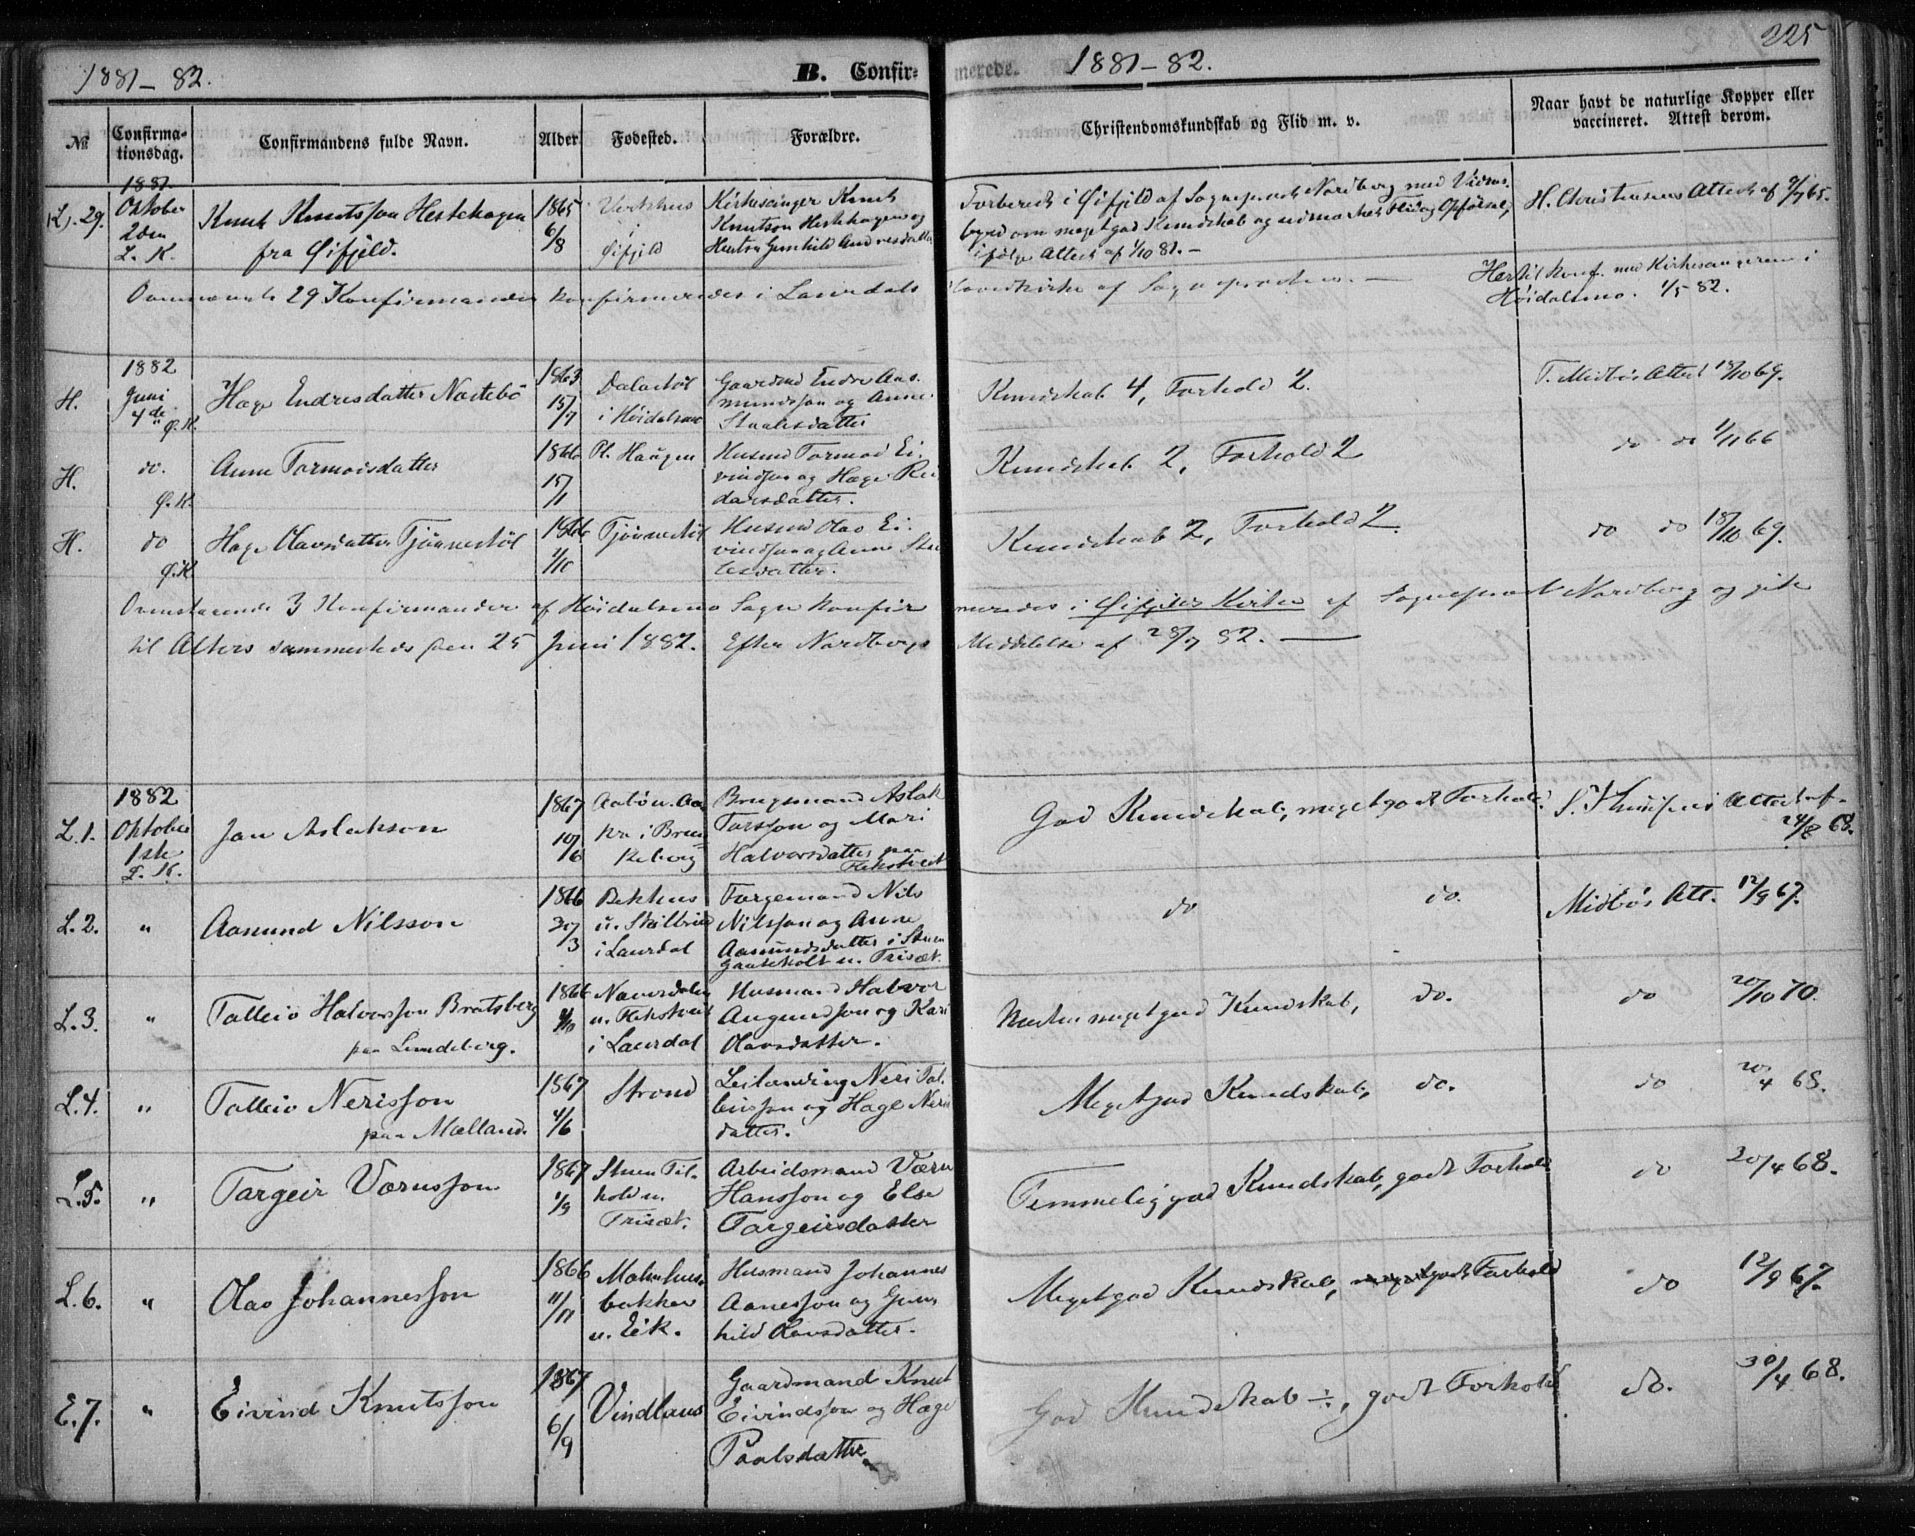 225
1881-82.
B. Confirmerede.
1881-82.
№
Confirmationsdag.
Confirmandens fulde Navn.
Alder
Fødested.
Forældre.
Christendomskundskab og Flid m. v.
Naar havt de naturlige Kopper eller vaccineret. Attest derom.
29.
1881
Oktober
2den
L. K.
Knut Knutsson Hestehagen
fra Øifjeld.
1865
6/8
i
Øifjeld
Kirkesanger Knut
Knutson Hestehagen og
Hustru Gunhild Andresdatter
Forberedt i Øifjeld af Sogneprest Nordberg med Vidnes-
byrd om megetgod Kundskab og udmærket Flid og Opførsel,
ifølge Attest af 1/10 81.-
H. Christensens Attest af 9/7 65.
Ovennævnte 29 Konfirmander konfirmeredes i Laurdals Hovedkirke af Sognepresten. —
Hertil konf. med Kirkesangeren i
Høidalsmo. 1/5 82.
H.
1882
Juni
4de
Ø.K.
Hæge Endresdatter Nostebö
1863
15/7
Dalastöl
i Høidalsmo
Gaardmd Endre Aas-
mundsson og Anne
Staalesdatter
Kundskab 4, Forhold 2.
T. Midbös Attest 18/10 69.
H.
do.
Ø.K.
Anne Tormodsdatter
1866
15/1
Pl. Haugen
Husmd Tormod Ei-
vindsson og Hæge Rei-
darsdatter.
Kundskab 2, Forhold 2
do do 1/11 66
H.
do
Ø.K.
Hæge Olavsdatter Tjönnestöl
1866
1/10
Tjönnestöl
Husmd Olav Ei-
vindsson og Anne Staa-
lesdatter.
Kundskab 2, Forhold 2
do do 18/10 69.
Ovenstaaende 3 Konfirmander af Høidalsmo Sogn konfirmeredes i Øifjelds Kirke af Sogneprest Nordberg og gik
til Alters sammesteds den 25 Juni 1882. Efter Nordbergs Meddelelse af 28/7 82. —
L.1.
1882
Oktober
1ste
L. K.
Jan Aslakson
1867
10/6
Brugsmand Aslak
Torsson og Mari
Halvorsdatter paa
Flekstveit
God Kundskab, megetgodt Forhold.
Attest af
24/8 68.
L.2.
"
Aasmund Nilsson
1866
30/3
Bekhus
u. Skilbrei
i Laurdal
Torgemand Nils
Nilsson og Anne
Aasmundsdatter i Stuen
Gauteholt u. Trisæt.
do
do.
Midbös Att. 12/9 67.
L.3.
"
Talleiv Halvorsson Bratsberg
paa Lundeberg.
1866
Naversdalen
u. Flekstveit
i Laurdal
Husmand Halvor
Augundsson og Kari
Olavsdatter.
Næsten megetgod Kundskab, do.
do
20/10 70.
L.4.
"
Talleiv Nerisson
paa Mælland.
1867
4/6
Strond
Leilænding Neri Tal-
leivsson og Hæge Neris-
datter.
Megetgod Kundskab, do.
do
20/4 68.
L.5.
"
Targeir Værnsson
1867
1/9
Stuen Til-
hold u.
Trisæt.
Arbeidsmand Værn
Hansson og Else
Targeirsdatter
Temmelig god Kundskab, godt Forhold
do
20/4 68.
L.6.
"
Olav Johannesson
1866
11/11
Malmhus-
bakken
u. Eik.
Husmand Johannes
Aanesson og Gun-
hild Olavsdatter.
Megetgod Kundskab, megetgodt Forhold
do
12/9 67.
E.7.
"
Eivind Knutsson
1867
6/9
Vindlaus
Gaardmand Knut
Eivindsson og Hæge
Paalsdatter
God Kundskab ÷, godt Forhold.
do.
30/4 68.